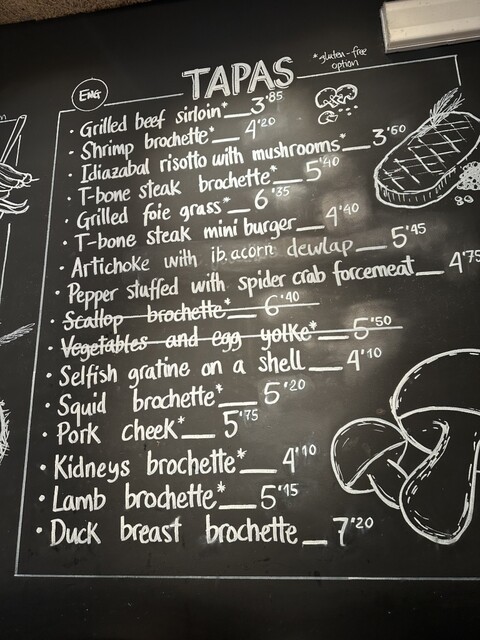 *gluten-free
option
ENG
TAPAS
· Grilled beef sirloin*__3'85
· Shrimp brochette*__4'20
· Idiazabal risotto with mushrooms*__3'50
· T-bone steak brochette*__5'40
· Grilled foie grass*__6'35
· T-bone steak mini burger__4'40
· Artichoke with ib.acorn dewlap__5'45
· Pepper stuffed with spider crab forcemeat__4'75
· Scallop brochette*__6'40
· Vegetables and egg yolke*__5'50
· Selfish gratine on a shell__4'10
· Squid brochette*__5'20
· Pork cheek*__5'75
· Kidneys brochette*__4'10
· Lamb brochette*__5'15
· Duck breast brochette__7'20